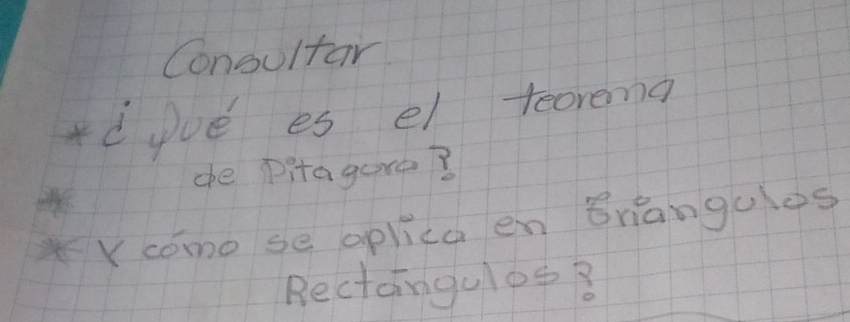 Consultar
* ¿Qué es el teorema
de Pitagora?
*
* Y cómo se aplica en triangulos
Rectángulos?